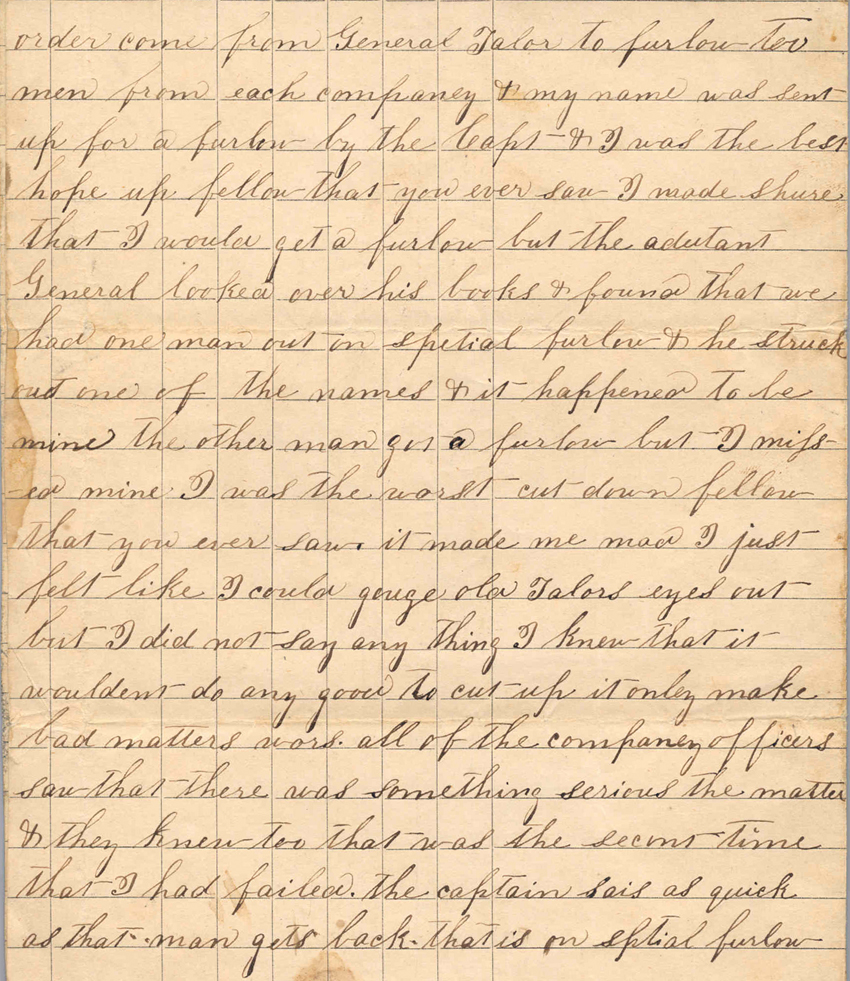 order come from General Talor to furlow too
men from each companey & my name was sent
up for a furlow by the Capt - & I was the best
hope up fellow that you ever saw I made shure
that I would get a furlow but the adutant
General looked over his books & found that we
had one man out on spetial furlow & he struck
out one of the names & it happened to be
mine the other man got a furlow but I miss-
-ed mine I was the worst cut down fellow
that you ever saw. it made me mad I just
felt like I could gouge old Talors eyes out
but I did not say any thing I knew that it
wouldent do any good to cut up it onley make
bad matters wors. all of the companey officers
saw that there was something serious the matter
& they knew too that was the secont time
that I had failed. the captain sais as quick
as that man gets back. that is on sptial furlow